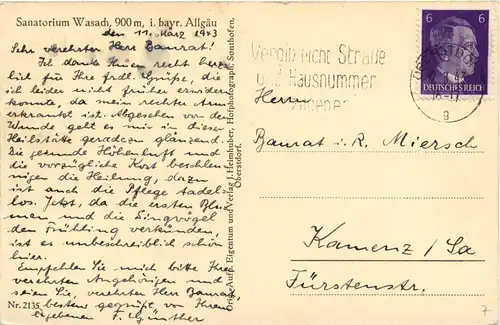 Sanatorium Wasach, 900 m, i. bayr. Allgäu
den 11. März 1943
Sehr verehrter Herr Baurat!
Ich danke Ihnen recht herz-
lich für Ihre frdl. Grüße, die
ich leider nicht früher erwidern
konnte, da mein rechter Arm
erkrankt ist. Abgesehen von der
Wunde geht es mir in dieser
Heilstätte geradezu glänzend.
Die gesunde Höhenluft und
die vorzügliche Kost beschleu-
nigen die Heilung, dazu
ist auch die Pflege tadel-
los. Jetzt, da die ersten Blu-
men und die Singvögel
den Frühling verkünden,
ist es unbeschreiblich schön
hier.
Empfehlen Sie mich bitte Ihren
verehrten Angehörigen und
seien Sie, verehrter Herr Baurat,
bestens gegrüßt von Ihrem
ergebenen F. Günther
Nr. 2135
Orig. Aufn. Eigentum und Verlag J. Heimhuber, Hofphotograph, Sonthofen,
Oberstdorf.
Vergiß nicht Straße
und Hausnummer
6 6
DEUTSCHES REICH
OBERSTDORF
g
Herrn
Baurat i. R. Miersch
Kamenz / Sa
Fürstenstr.
7